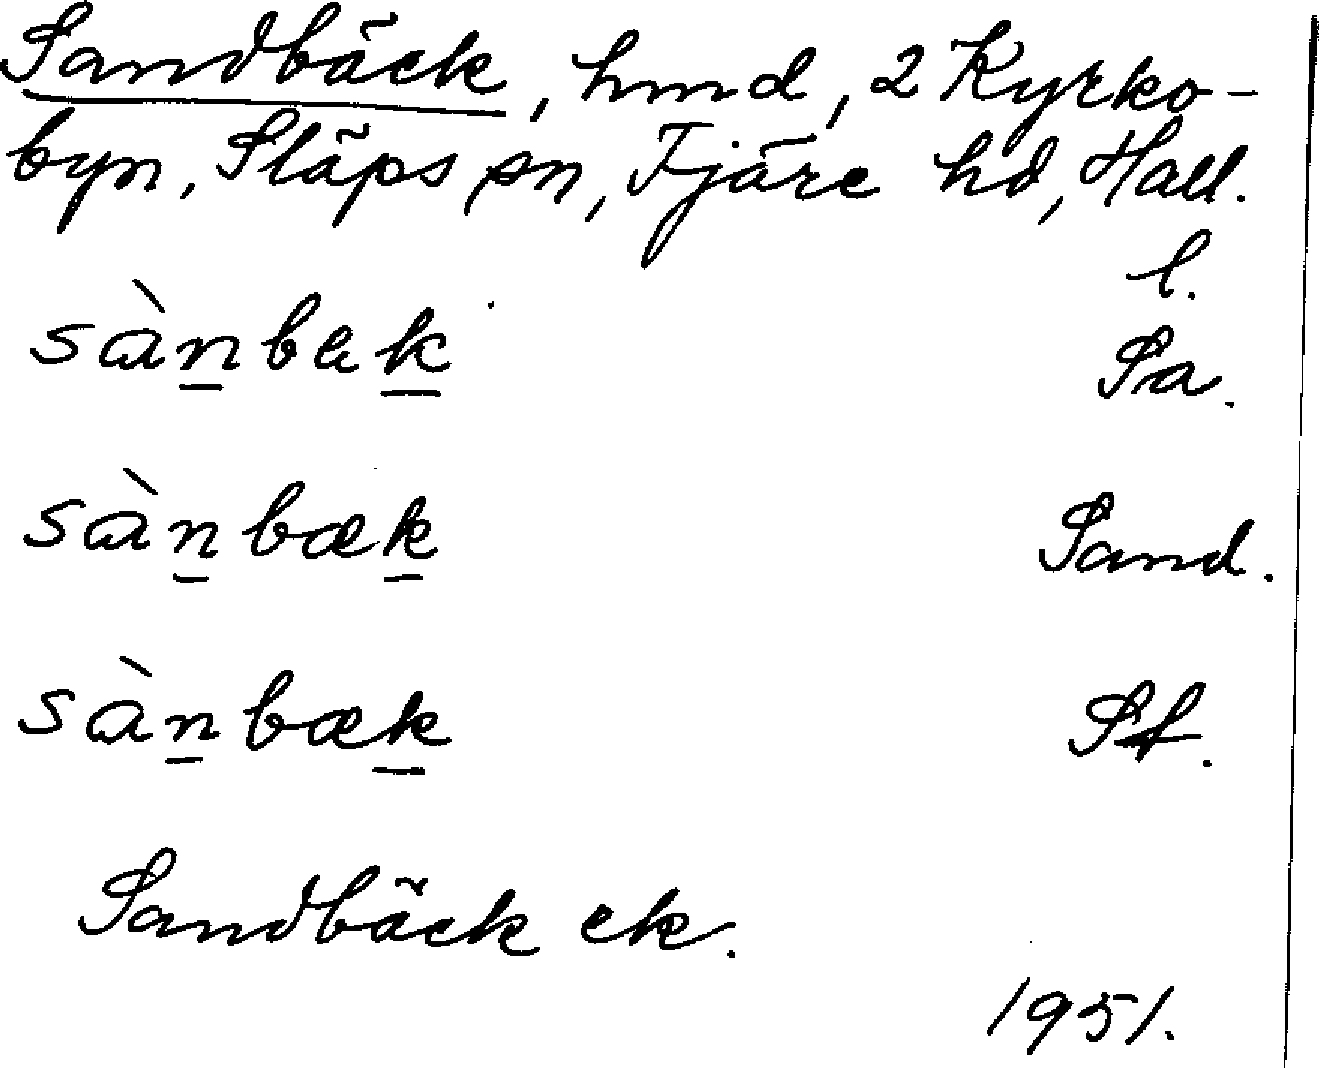 Sandbäck, hmd, 2 Kyrko-
byn, Släps sn, Fjäre hd, Hall.
l.
sànbak Sa.
sànbæk Sand.
sànbæk Sf.
Sandbäck ek.
1951.